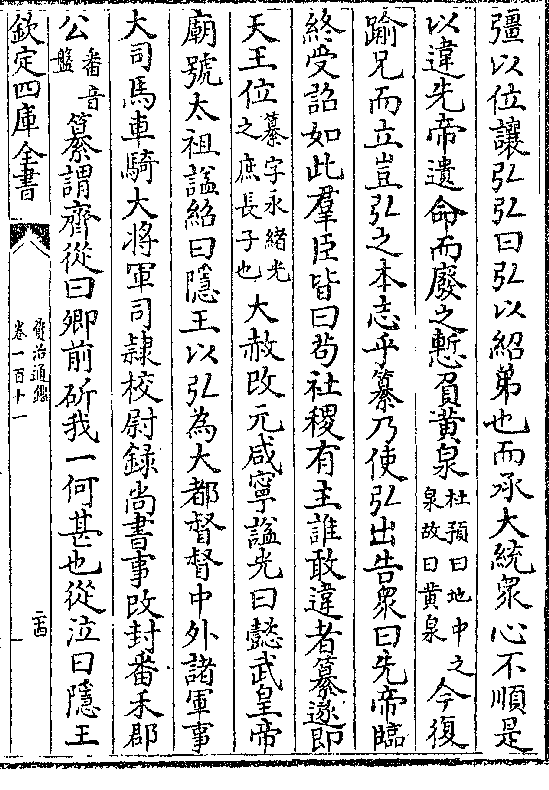 彊以位讓弘弘曰弘以紹弟也而承大統衆心不順是
以違先帝遺命而廢之慙負黃泉杜預曰地中之泉故曰黃泉今復
踰兄而立豈弘之本志乎纂乃使弘出告衆曰先帝臨
終受詔如此羣臣皆曰苟社稷有主誰敢違者纂遂即
天王位纂字永緒光之庶長子也大赦改元咸寧謚光曰懿武皇帝
廟號太祖謚紹曰隱王以弘為大都督督中外諸軍事
大司馬車騎大將軍司隷校尉録尚書事改封番禾郡
公番音盤纂謂齊從曰卿前斫我一何甚也從泣曰隱王
欽定四庫全書
資治通鑑
卷一百十一
二十四